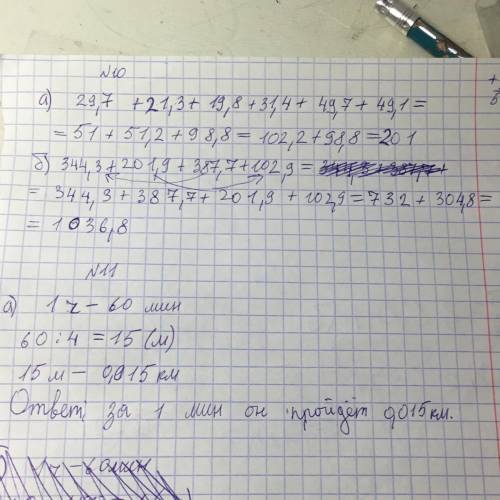 N10
а) 29,7 +21,3+ 19,8+31,4+ 49,7+49,1=
= 51 + 51,2 + 98,8 = 102,2+98,8 =201
б) 344,3+201,9 + 387,7+102,9 =
= 344,3+387,7+201,9 + 102,9=732+304,8=
= 1036,8
N11
а) 1 ч - 60 мин
60:4 =15 (м)
15 м - 0,015 км
Ответ: за 1 мин он пройдёт 0,015 км.
1 ч - 60 мин